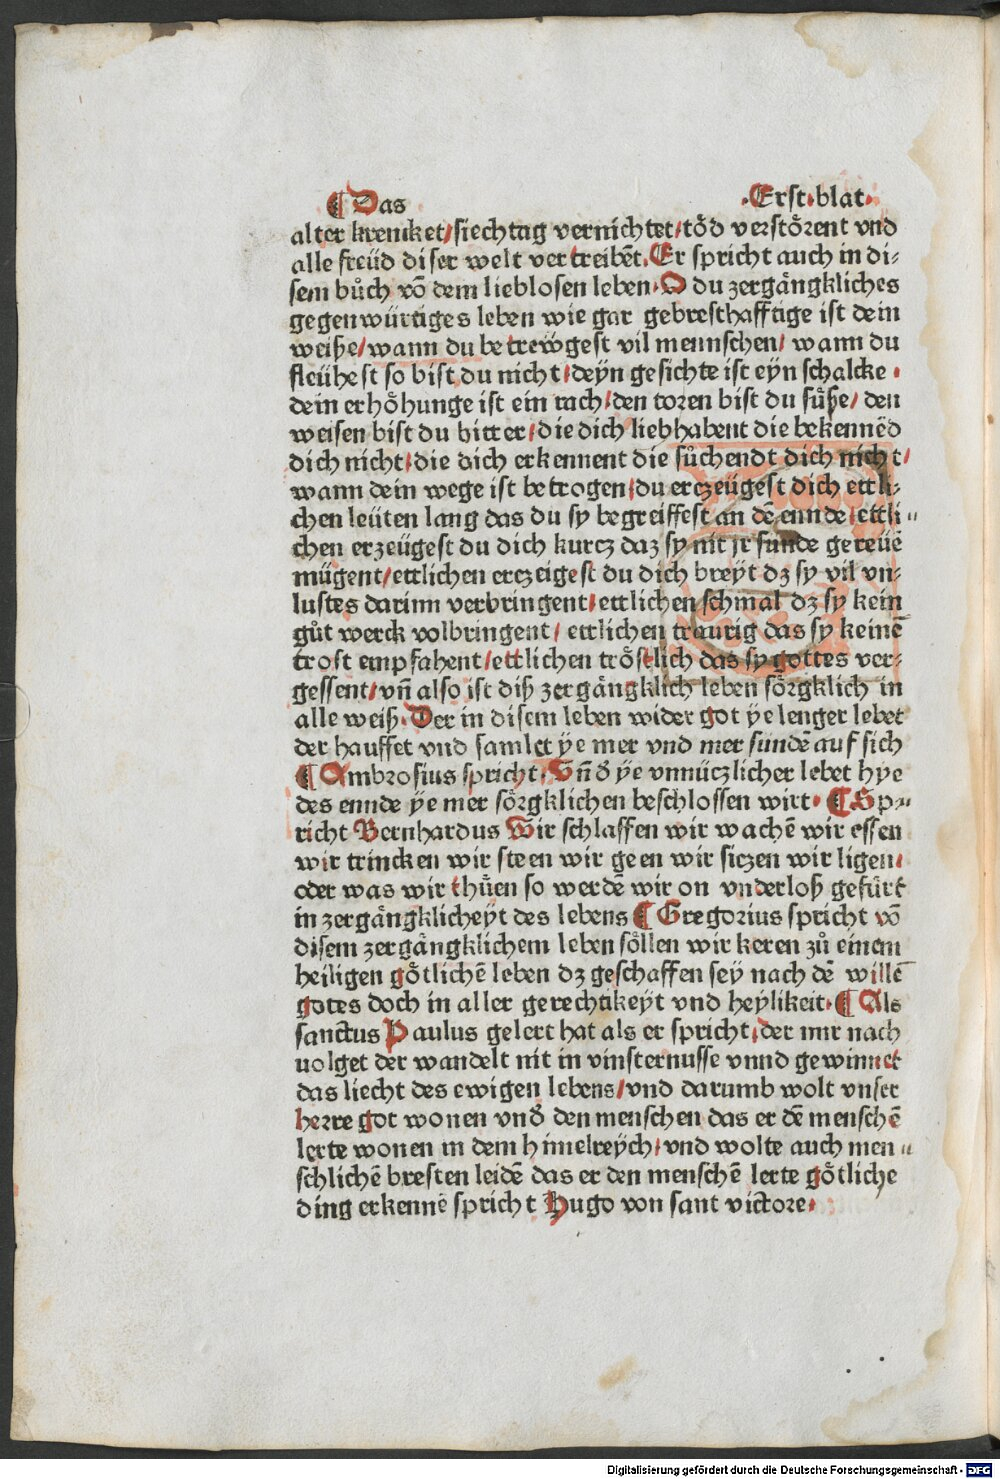 ¶ Das ·Erst·blat·
alter krencket/siechtag vernichtet/tŏd verstŏrent vnd
alle freüd diser welt vertreibēt. Er spricht auch in di⸗
sem bůch vō dem lieblosen leben· O du zergängkliches
gegenwürtiges leben wie gar gebresthafftige ist dein
weiße/wann du betreẅgest vil mennschen/ wann du
fleühest so bist du nicht/deÿn gesichte ist eÿn schalcke ·
dein erhöhunge ist ein rach/den toren bist du süße/ den
weisen bist du bitter/die dich liebhabent die bekennēd
dich nicht/die dich erkennent die sůchendt dich nicht/
wann dein wege ist betrogen/du erczeügest dich ettli⸗
chen leüten lang das du sy begreiffest an dē ennde/ettli⸗
chen erzeügest du dich kurcz daz sy nit jr sunde gereüē
mügent/ettlichen erczeigest du dich breÿt dz sy vil vn⸗
lustes darinn verbringent/ettlichen schmal dz sy kein
gůt werck volbringent/ ettlichen traurig das sy keinē
trost empfahent/ettlichen tröstlich das sy gottes ver⸗
gessent/vñ also ist diß zergängklich leben sörgklich in
alle weiß· Der in disem leben wider got ÿe lenger lebet
der hauffet vnd samlet ÿe mer vnd mer sündē auf sich
¶ Ambrosius spricht· Vñ đ ÿe vnnüczlicher lebet hye
des ennde ÿe mer sörgklichen beschlossen wirt· ¶ Sp⸗
richt Bernhardus Wir schlaffen wir wachē wir essen
wir trincken wir steen wir geen wir siczen wir ligen/
oder was wir thüen so werde wir on vnderloß gefürt
in zergängklicheÿt des lebens ¶ Gregorius spricht vō
disem zergängklichem leben söllen wir keren zů einem
heiligen götlichē leben dz geschaffen seÿ nach dē willē
gotes doch in aller gerechtikeÿt vnd heÿlikeit· ¶ Als
sanctus Paulus gelert hat als er spricht/der mir nach
uolget der wandelt nit in vinsternusse vnnd gewinnet
das liecht des ewigen lebens/vnd darumb wolt vnser
herre got wonen vnđ den menschen das er dē menschē
lerte wonen in dem himelreÿch/vnd wolte auch men⸗
schlichē bresten leidē das er den menschē lerte götliche
ding erkennē spricht Hugo von sant victore·
Digitalisierung gefördert durch die Deutsche Forschungsgemeinschaft - DFG